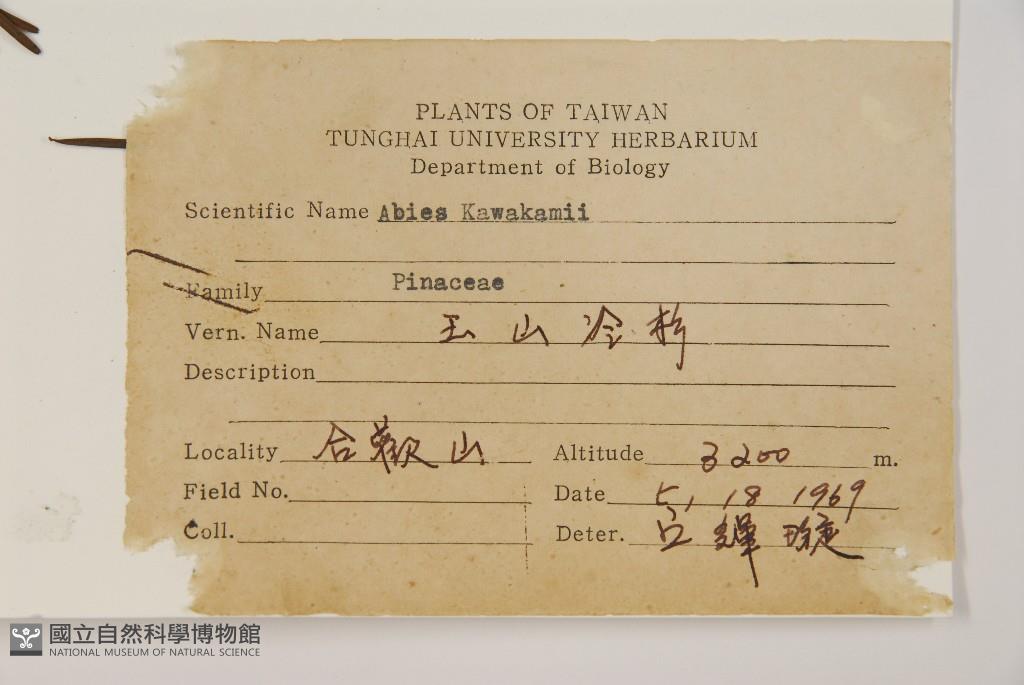 PLANTS OF TAIWAN
TUNGHAI UNIVERSITY HERBARIUM
Department of Biology
Scientific Name Abies Kawakamii
Family Pinaceae
Vern. Name 玉山冷杉
Description
Locality 合歡山 Altitude 3200 m.
Field No. Date 5, 18 1969
Coll. Deter.
國立自然科學博物館
NATIONAL MUSEUM OF NATURAL SCIENCE